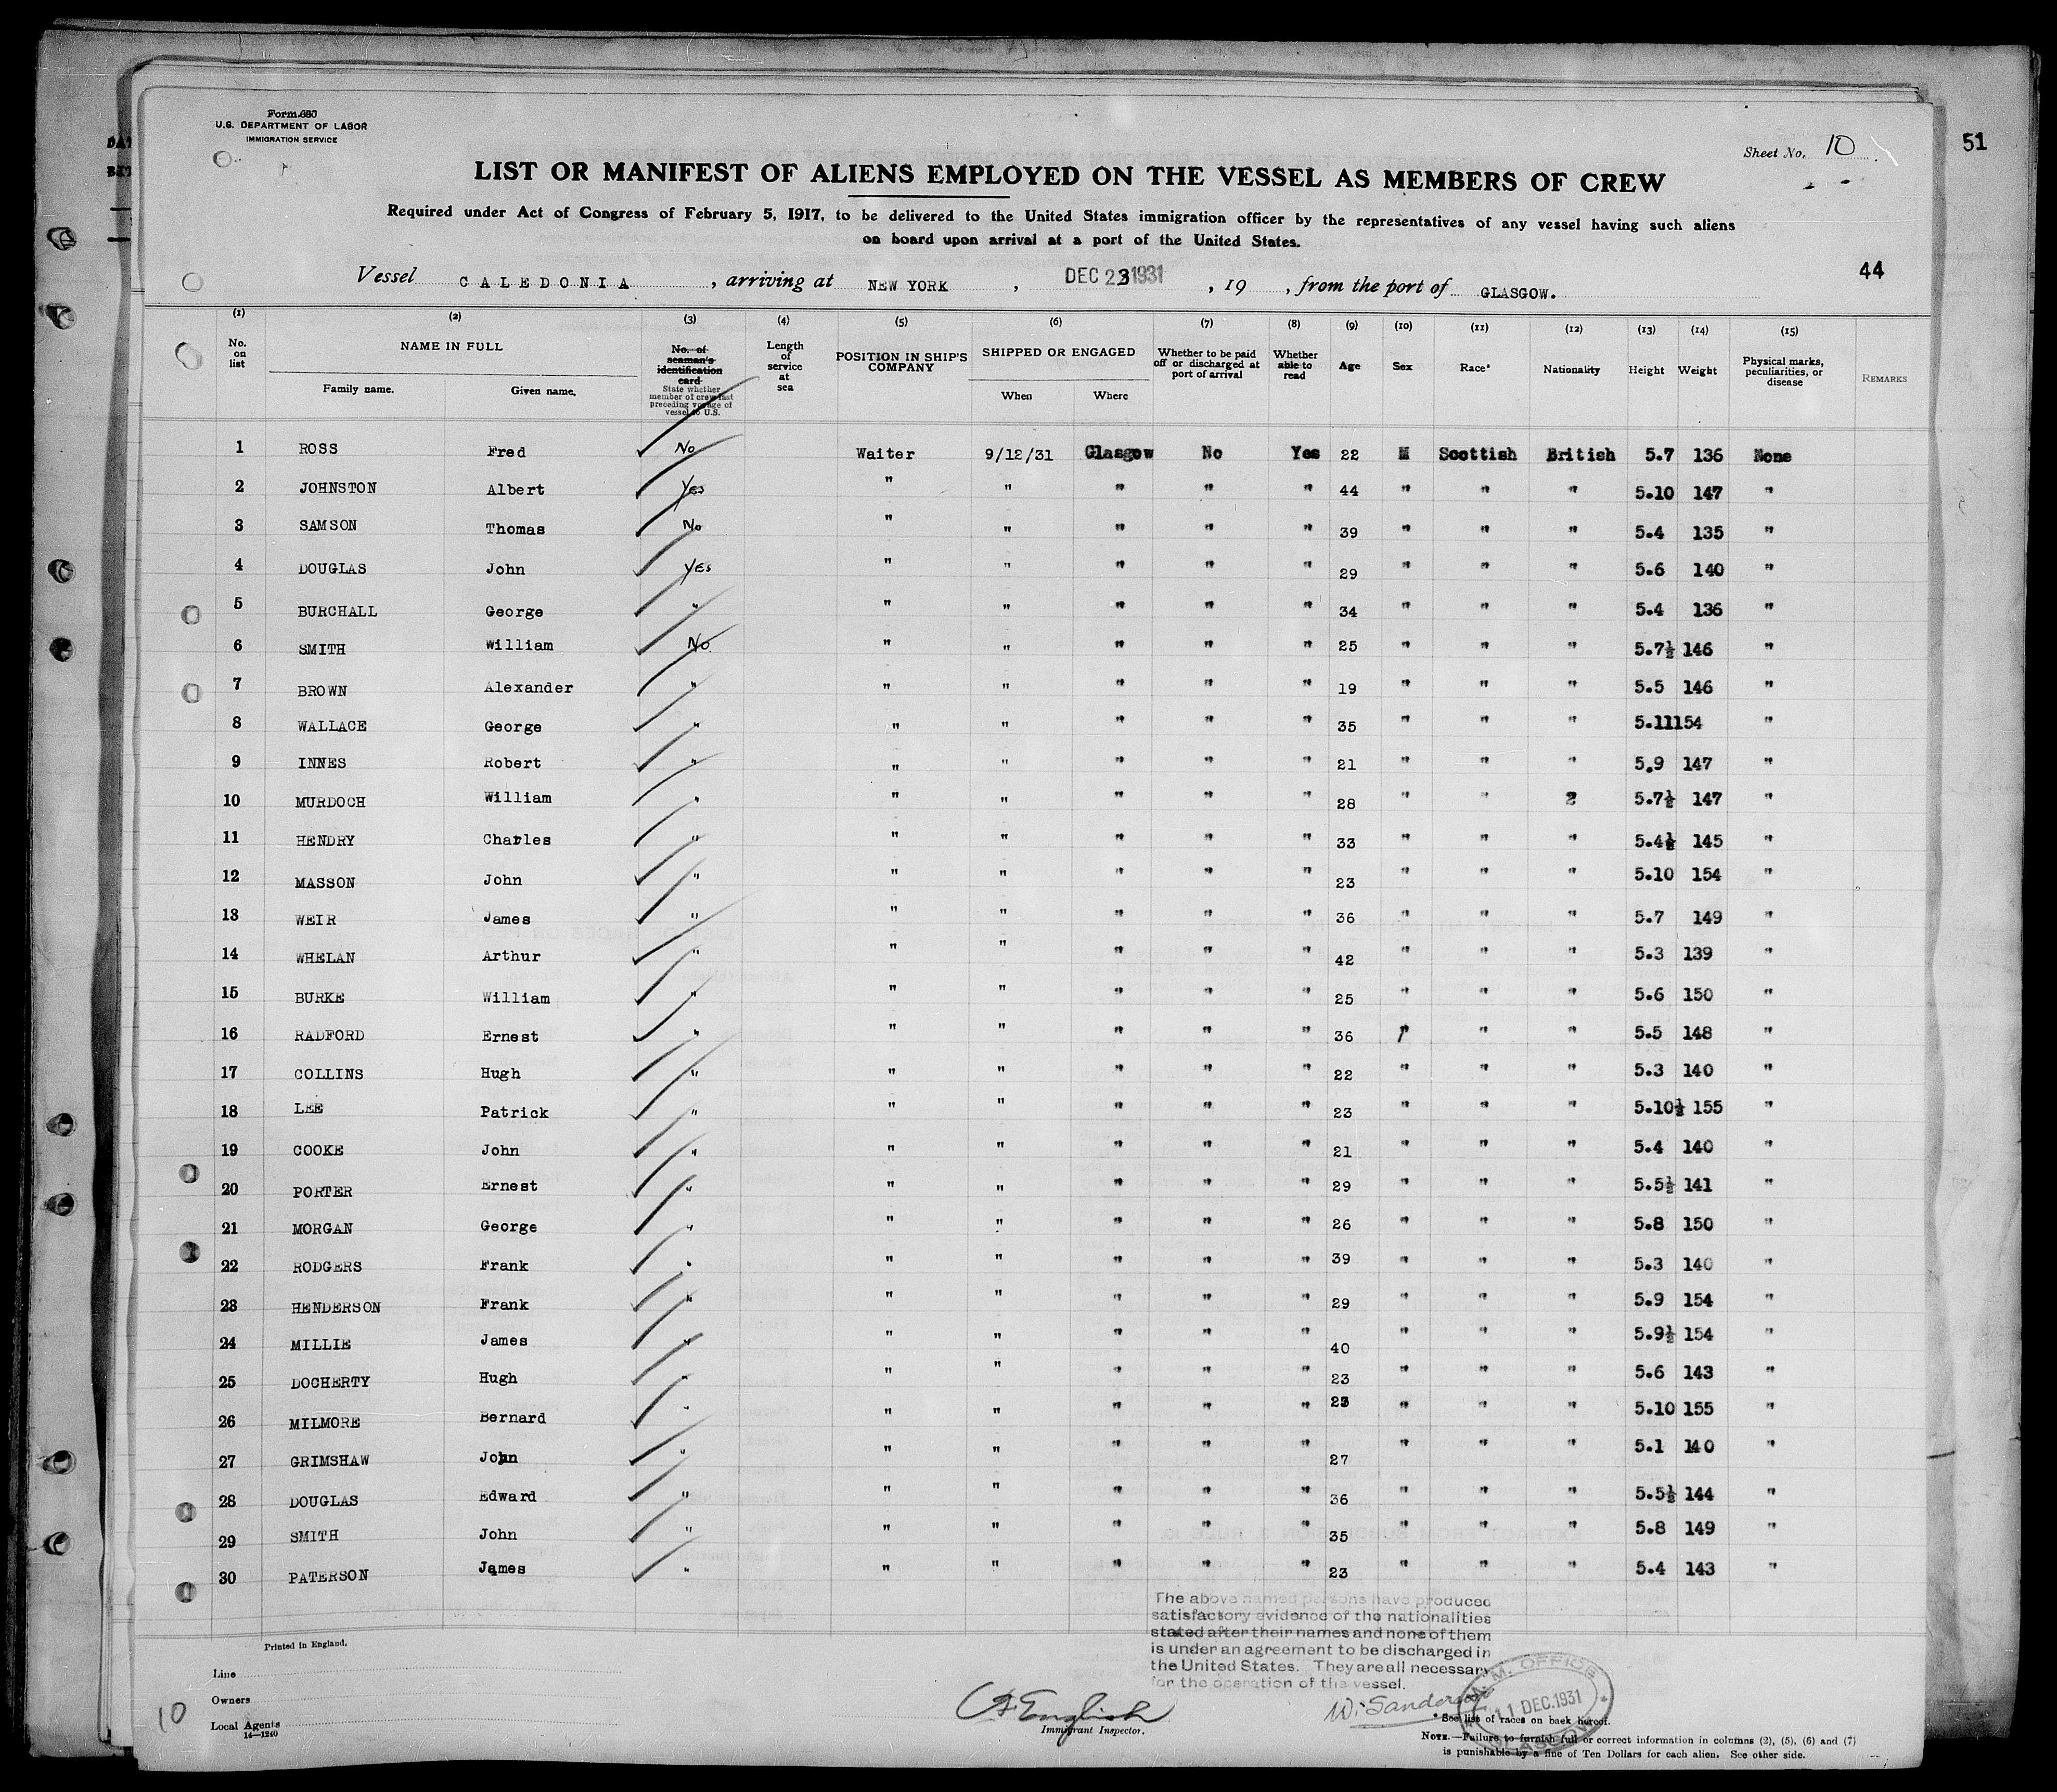 Form 680
U.S. DEPARTMENT OF LABOR
IMMIGRATION SERVICE
Sheet No. 10
51
LIST OR MANIFEST OF ALIENS EMPLOYED ON THE VESSEL AS MEMBERS OF CREW
Required under Act of Congress of February 5, 1917, to be delivered to the United States immigration officer by the representatives of any vessel having such aliens
on board upon arrival at a port of the United States.
44
Vessel CALEDONIA, arriving at NEW YORK, DEC 23 1931, 19 , from the port of GLASGOW.
(1) (2) (3) (4) (5) (6) (7) (8) (9) (10) (11) (12) (13) (14) (15)
No. on list NAME IN FULL Family name. Given name. No. of seaman's identification card State whether member of crew last preceding voyage of vessel to U.S. Length of service at sea POSITION IN SHIP'S COMPANY SHIPPED OR ENGAGED When Where Whether to be paid off or discharged at port of arrival Whether able to read Age Sex Race* Nationality Height Weight Physical marks, peculiarities, or disease REMARKS
1 ROSS Fred No Waiter 9/12/31 Glasgow No Yes 22 M Scottish British 5.7 136 None
2 JOHNSTON Albert Yes " " " " " 44 " " " 5.10 147 "
3 SAMSON Thomas No " " " " " 39 " " " 5.4 135 "
4 DOUGLAS John Yes " " " " " 29 " " " 5.6 140 "
5 BURCHALL George " " " " " " 34 " " " 5.4 136 "
6 SMITH William No " " " " " 25 " " " 5.7½ 146 "
7 BROWN Alexander " " " " " " 19 " " " 5.5 146 "
8 WALLACE George " " " " " " 35 " " " 5.11 154 "
9 INNES Robert " " " " " " 21 " " " 5.9 147 "
10 MURDOCH William " " " " " " 28 " " 2 5.7½ 147 "
11 HENDRY Charles " " " " " " 33 " " " 5.4½ 145 "
12 MASSON John " " " " " " 23 " " " 5.10 154 "
13 WEIR James " " " " " " 36 " " " 5.7 149 "
14 WHELAN Arthur " " " " " " 42 " " " 5.3 139 "
15 BURKE William " " " " " " 25 " " " 5.6 150 "
16 RADFORD Ernest " " " " " " 36 " " " 5.5 148 "
17 COLLINS Hugh " " " " " " 22 " " " 5.3 140 "
18 LEE Patrick " " " " " " 23 " " " 5.10½ 155 "
19 COOKE John " " " " " " 21 " " " 5.4 140 "
20 PORTER Ernest " " " " " " 29 " " " 5.5½ 141 "
21 MORGAN George " " " " " " 26 " " " 5.8 150 "
22 RODGERS Frank " " " " " " 39 " " " 5.3 140 "
23 HENDERSON Frank " " " " " " 29 " " " 5.9 154 "
24 MILLIE James " " " " " " 40 " " " 5.9½ 154 "
25 DOCHERTY Hugh " " " " " " 23 " " " 5.6 143 "
26 MILMORE Bernard " " " " " " " " " 5.10 155 "
27 GRIMSHAW John " " " " " " 27 " " " 5.1 140 "
28 DOUGLAS Edward " " " " " " 36 " " " 5.5½ 144 "
29 SMITH John " " " " " " 35 " " " 5.8 149 "
30 PATERSON James " " " " " " 23 " " " 5.4 143 "
The above named persons have produced
satisfactory evidence of the nationalities
stated after their names and none of them
is under an agreement to be discharged in
the United States. They are all necessary
for the operation of the vessel.
Printed in England.
Line
Owners
Local Agents
14—1240
10
English
Immigrant Inspector.
W. Sanderson
M. M. OFFICE
11 DEC. 1931
GLASGOW
* See list of races on back hereof.
NOTE.—Failure to furnish full or correct information in columns (2), (5), (6) and (7)
is punishable by a fine of Ten Dollars for each alien. See other side.